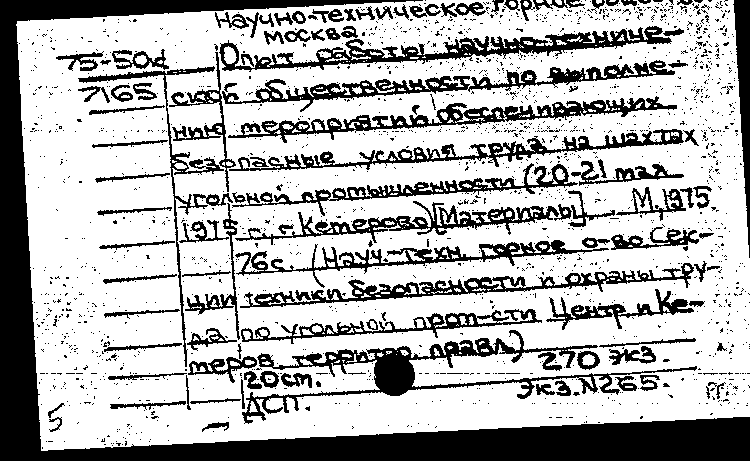 Научно-техническое горное общество
Москва.
75-50д Опыт работы научно-техниче-
7165 ской общественности по выполне-
нию мероприятий обеспечивающих
безопасные условия труда на шахтах
угольной промышленности (20-21 мая
1975 г., г. Кемерово) [Материалы]. М, 1975.
76с. (Науч.-техн. горное о-во Сек-
ции техники безопасности и охраны тру-
да по угольной пром-сти Центр и Ке-
меров. территор. правл.)
20см. 270 экз.
ДСП. Экз.N265.
5